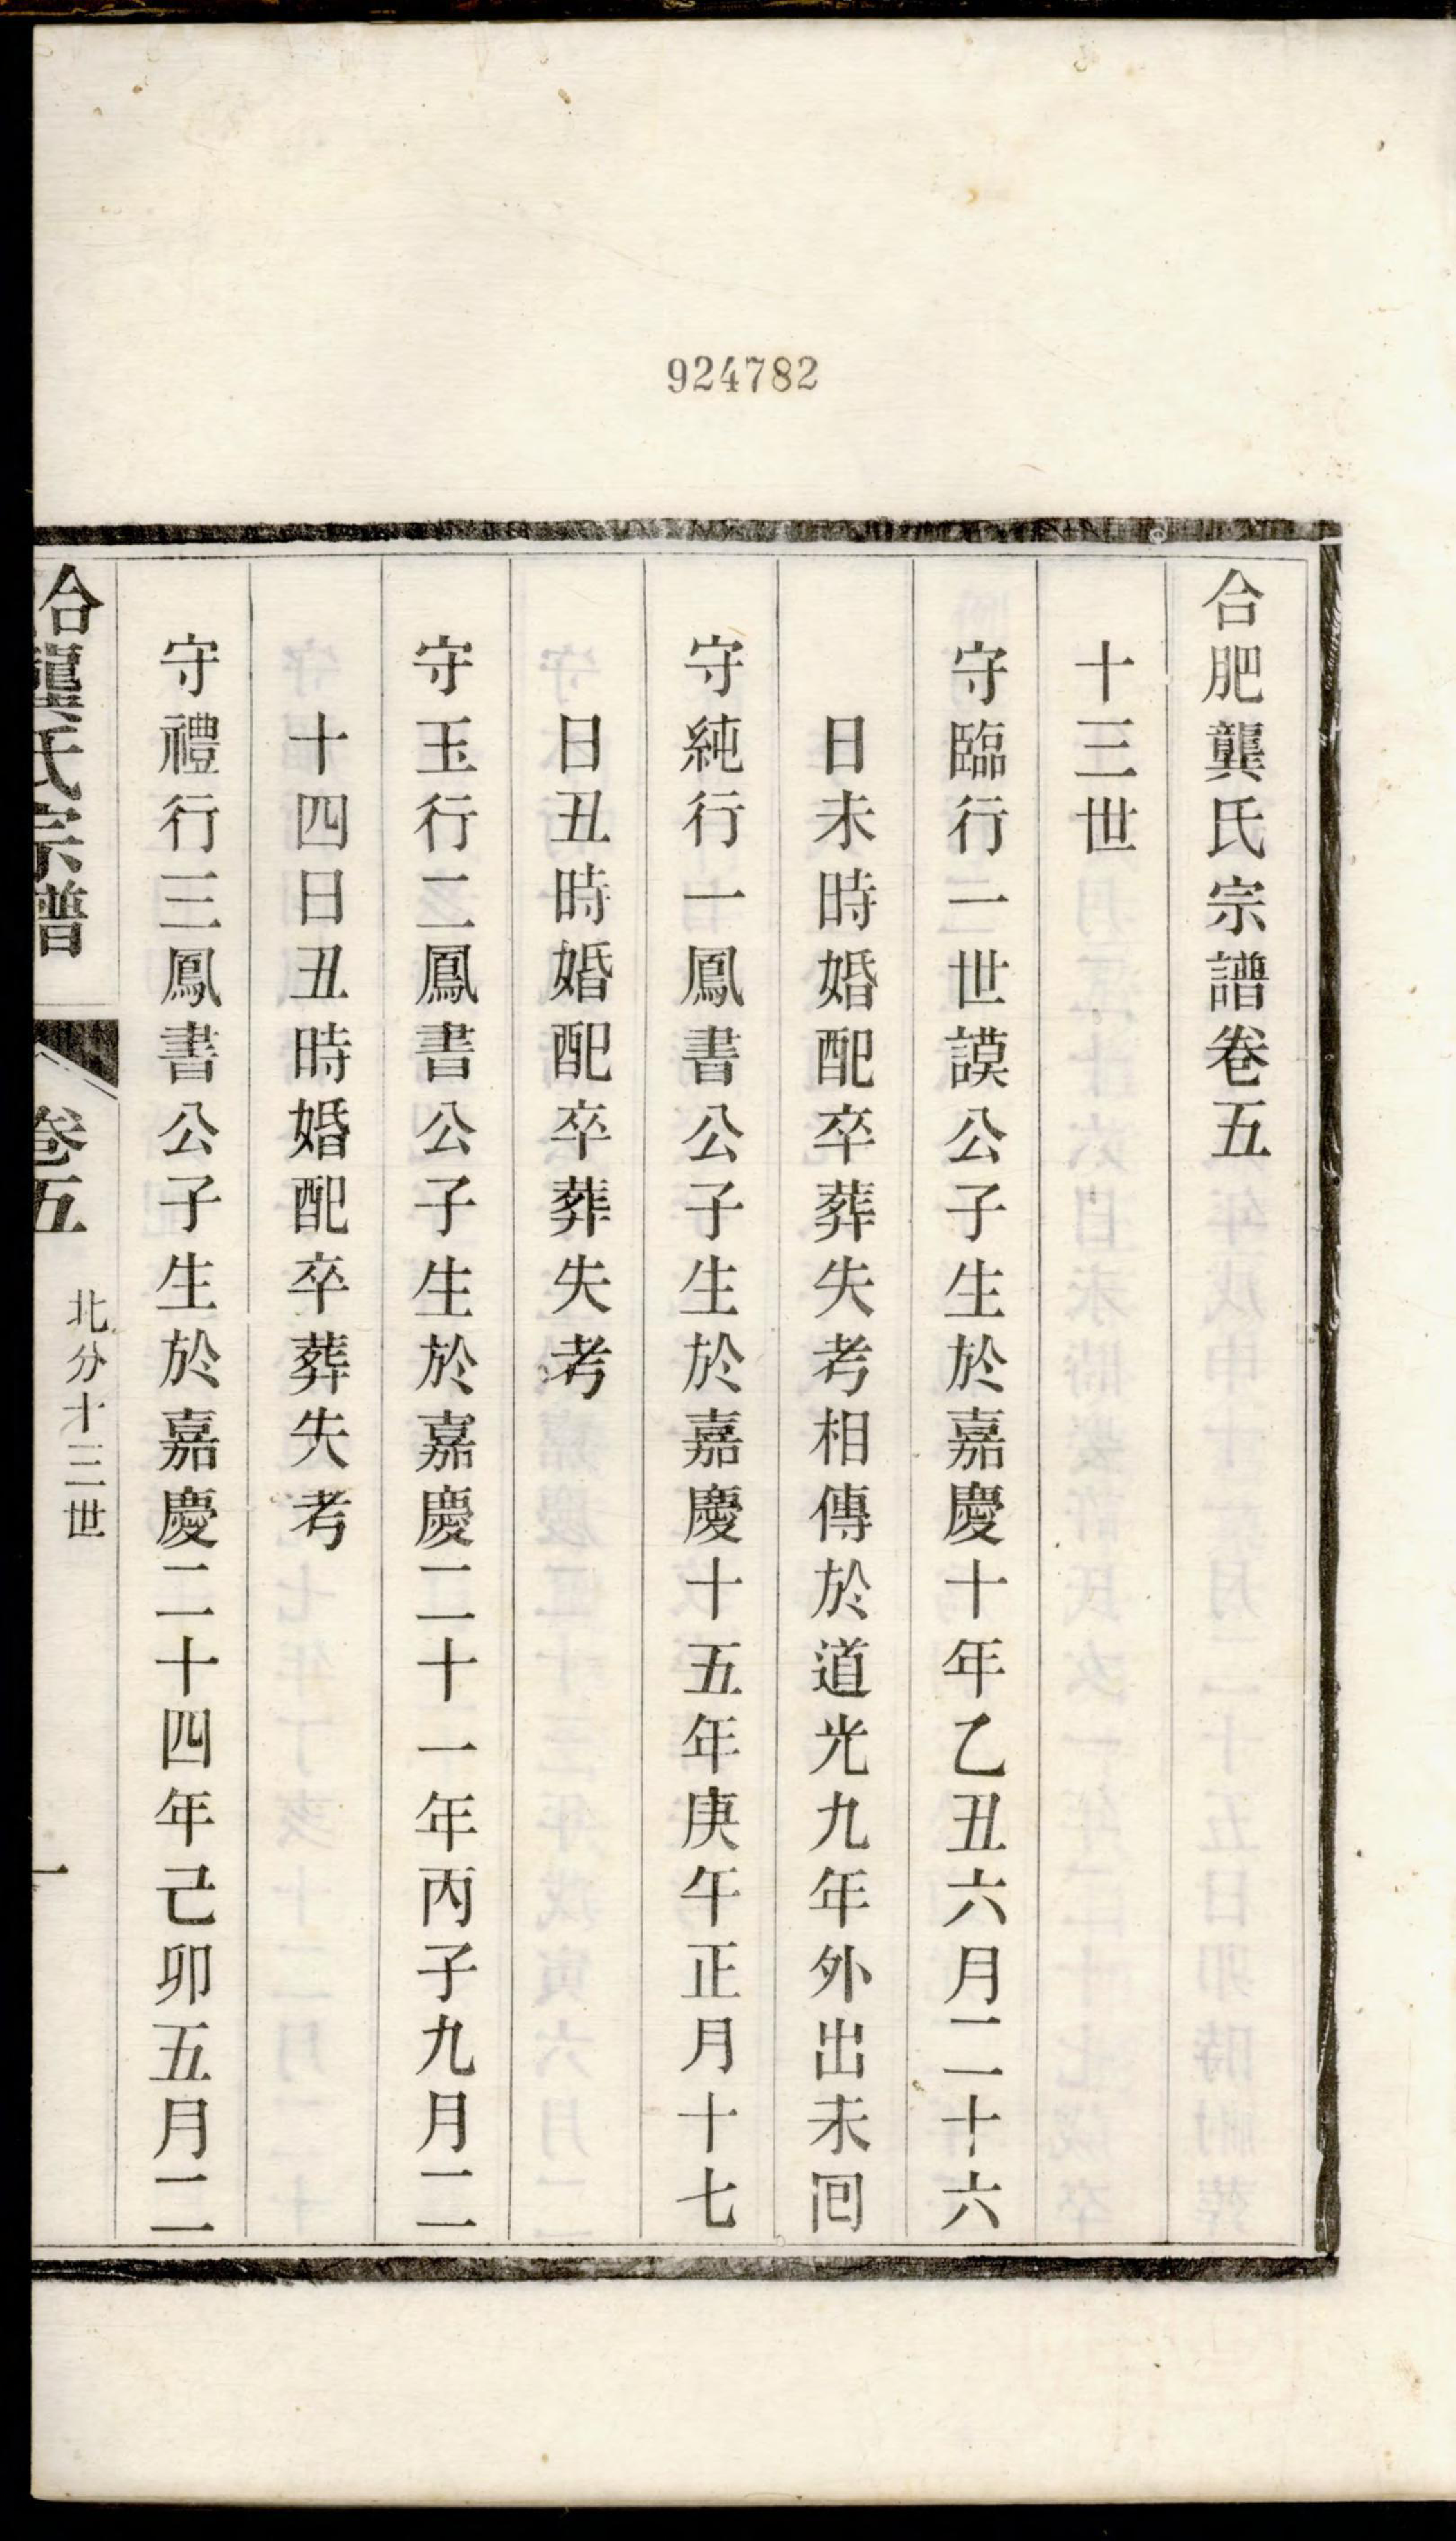 924782
合肥龔氏宗譜卷五
十三世
守臨行一世謨公子生於嘉慶十年乙丑六月二十六
日未時婚配卒葬失考相傳於道光九年外出未囘
守純行一鳳書公子生於嘉慶十五年庚午正月十七
日丑時婚配卒葬失考
守玉行二鳳書公子生於嘉慶二十一年丙子九月二
十四日丑時婚配卒葬失考
守禮行三鳳書公子生於嘉慶二十四年己卯五月二
合龔氏宗譜
卷五
北分十三世
一